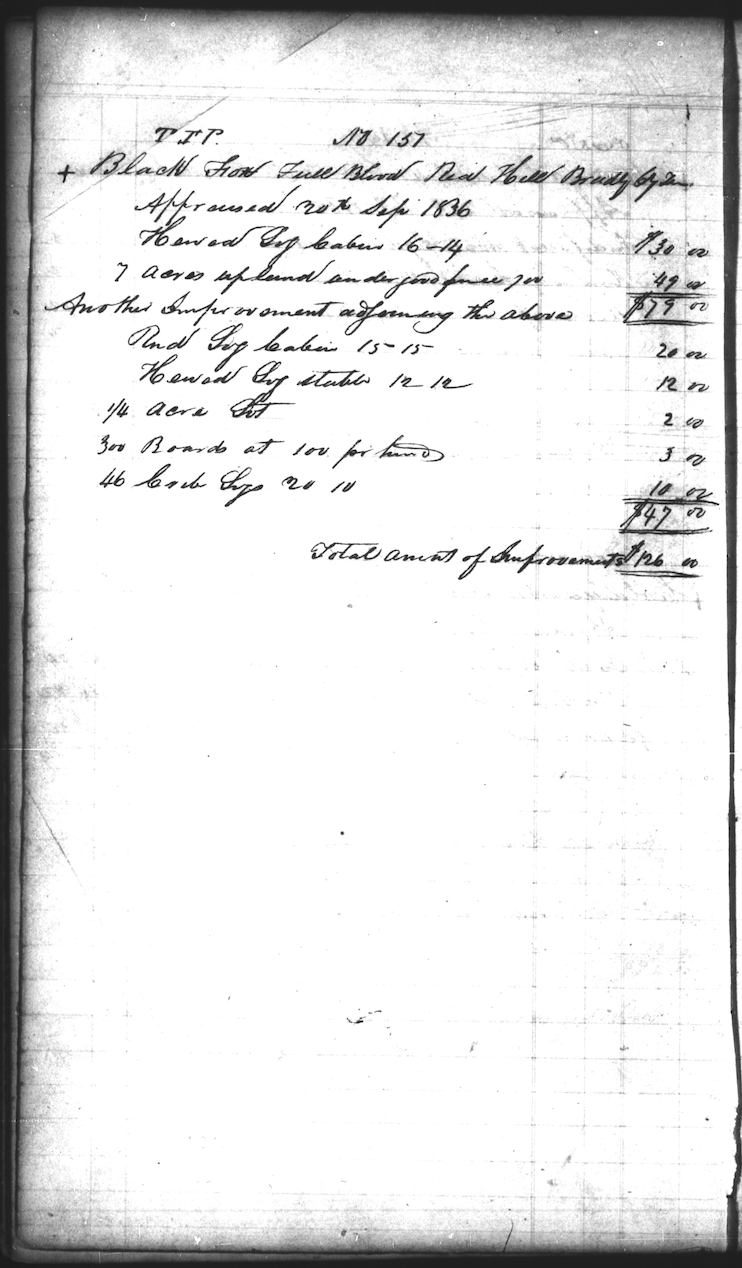 No 157
+ Black Fox Full Blood Red Hill Bradly Cty Ten
Appraised 20th Sep 1836
Hewed Log Cabin 16-14 $30 00
7 Acres upland under good fence 700 49 00
$79 00
Another Improvement adjoining the above
Rnd Log Cabin 15-15 20 00
Hewed Log stable 12 12 12 00
1/4 Acre Lot 2 00
300 Boards at 100 pr hund 3 00
46 Crib Logs 20 10 10 00
$47 00
Total amnt of Improvements $126 00